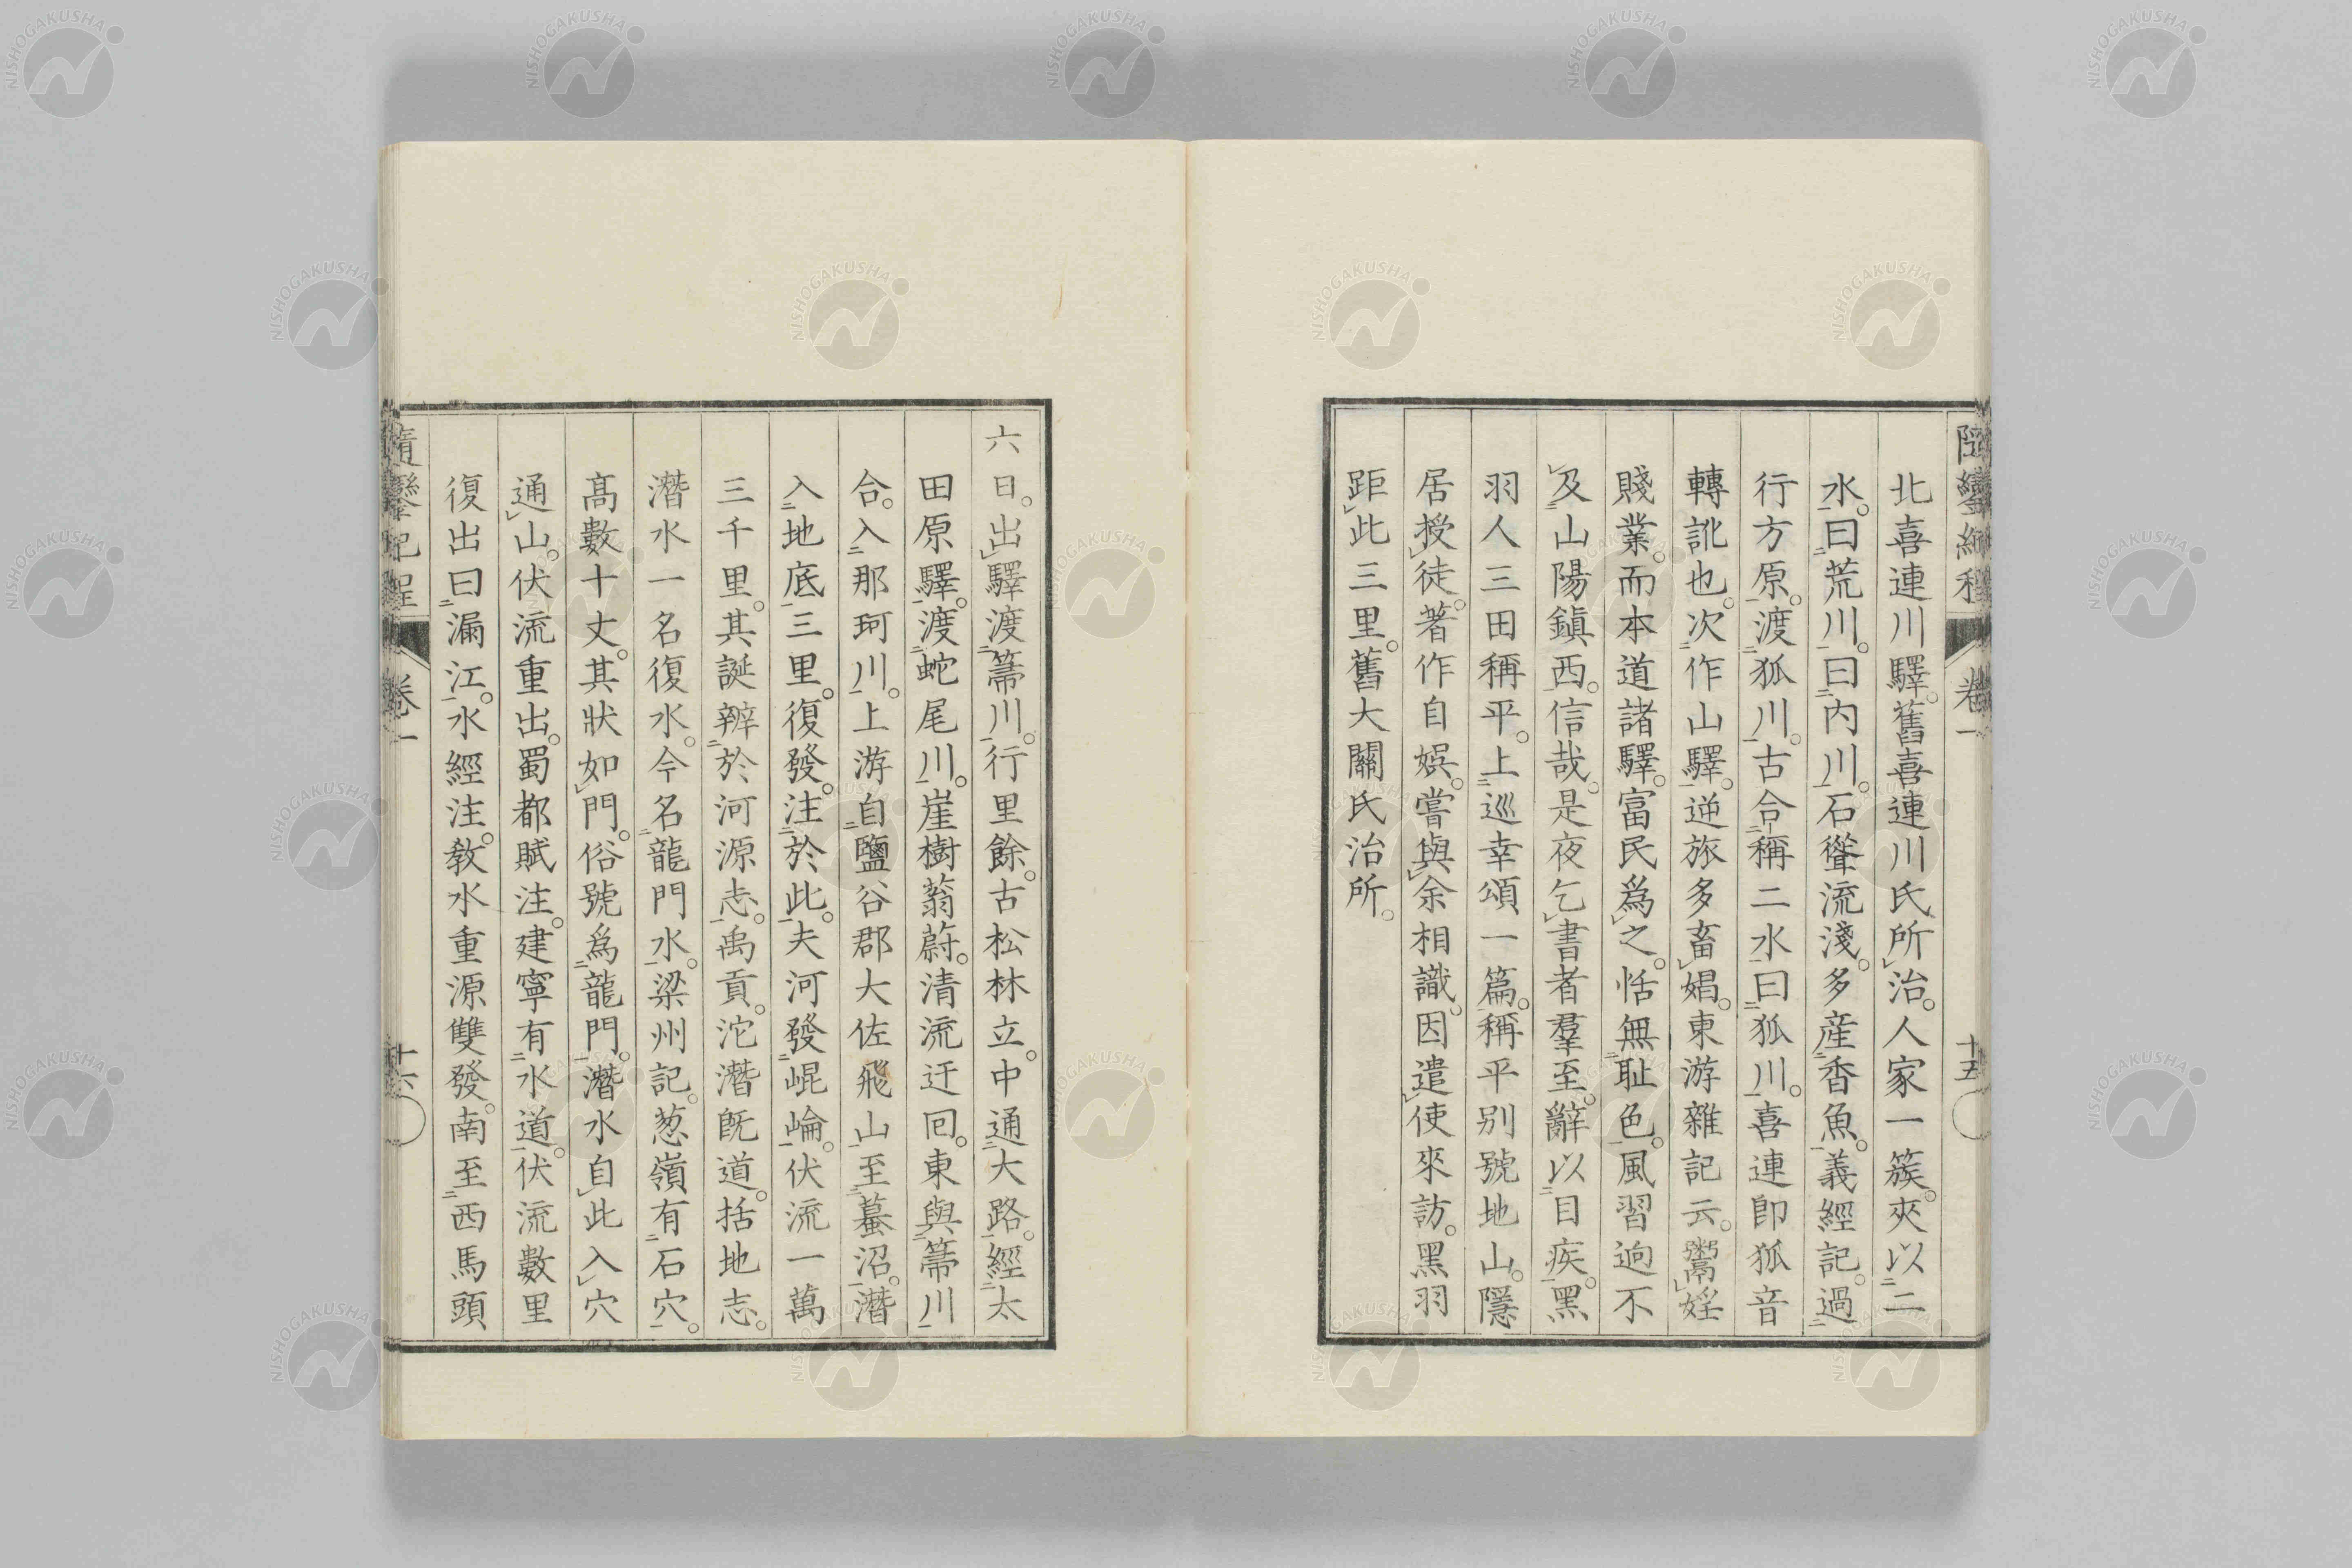 隨鑾紀程 卷一 十五
北喜連川驛。舊喜連川氏所治。人家一簇。夾以二
水。曰荒川。曰内川。石聳流淺。多産香魚。義經記。過
行方原。渡狐川。古合稱二水曰狐川。喜連卽狐音
轉訛也。次作山驛。逆旅多畜娼。東游雜記云。鬻婬
賤業。而本道諸驛。富民爲之。恬無耻色。風習逈不
及山陽鎭西。信哉。是夜乞書者羣至。辭以目疾。黑
羽人三田稱平。上巡幸頌一篇。稱平别號地山。隱
居授徒。著作自娯。嘗與余相識。因遣使來訪。黑羽
距此三里。舊大關氏治所。
六日。出驛渡箒川。行里餘。古松林立。中通大路。經太
田原驛。渡蛇尾川。崖樹蓊蔚。清流迂回。東與箒川
合。入那珂川。上游自鹽谷郡大佐飛山至蟇沼。潛
入地底三里。復發。注於此。夫河發崐崘。伏流一萬
三千里。其誕辨於河源志。禹貢。沱潛旣道。括地志。
潛水一名復水。今名龍門水。梁州記。葱嶺有石穴。
髙數十丈。其狀如門。俗號爲龍門。潛水自此入穴
通山。伏流重出。蜀都賦注。建寧有水道。伏流數里
復出曰漏江。水經注。敎水重源雙發。南至西馬頭
隨鑾紀程 卷一 十六
NISHOGAKUSHA